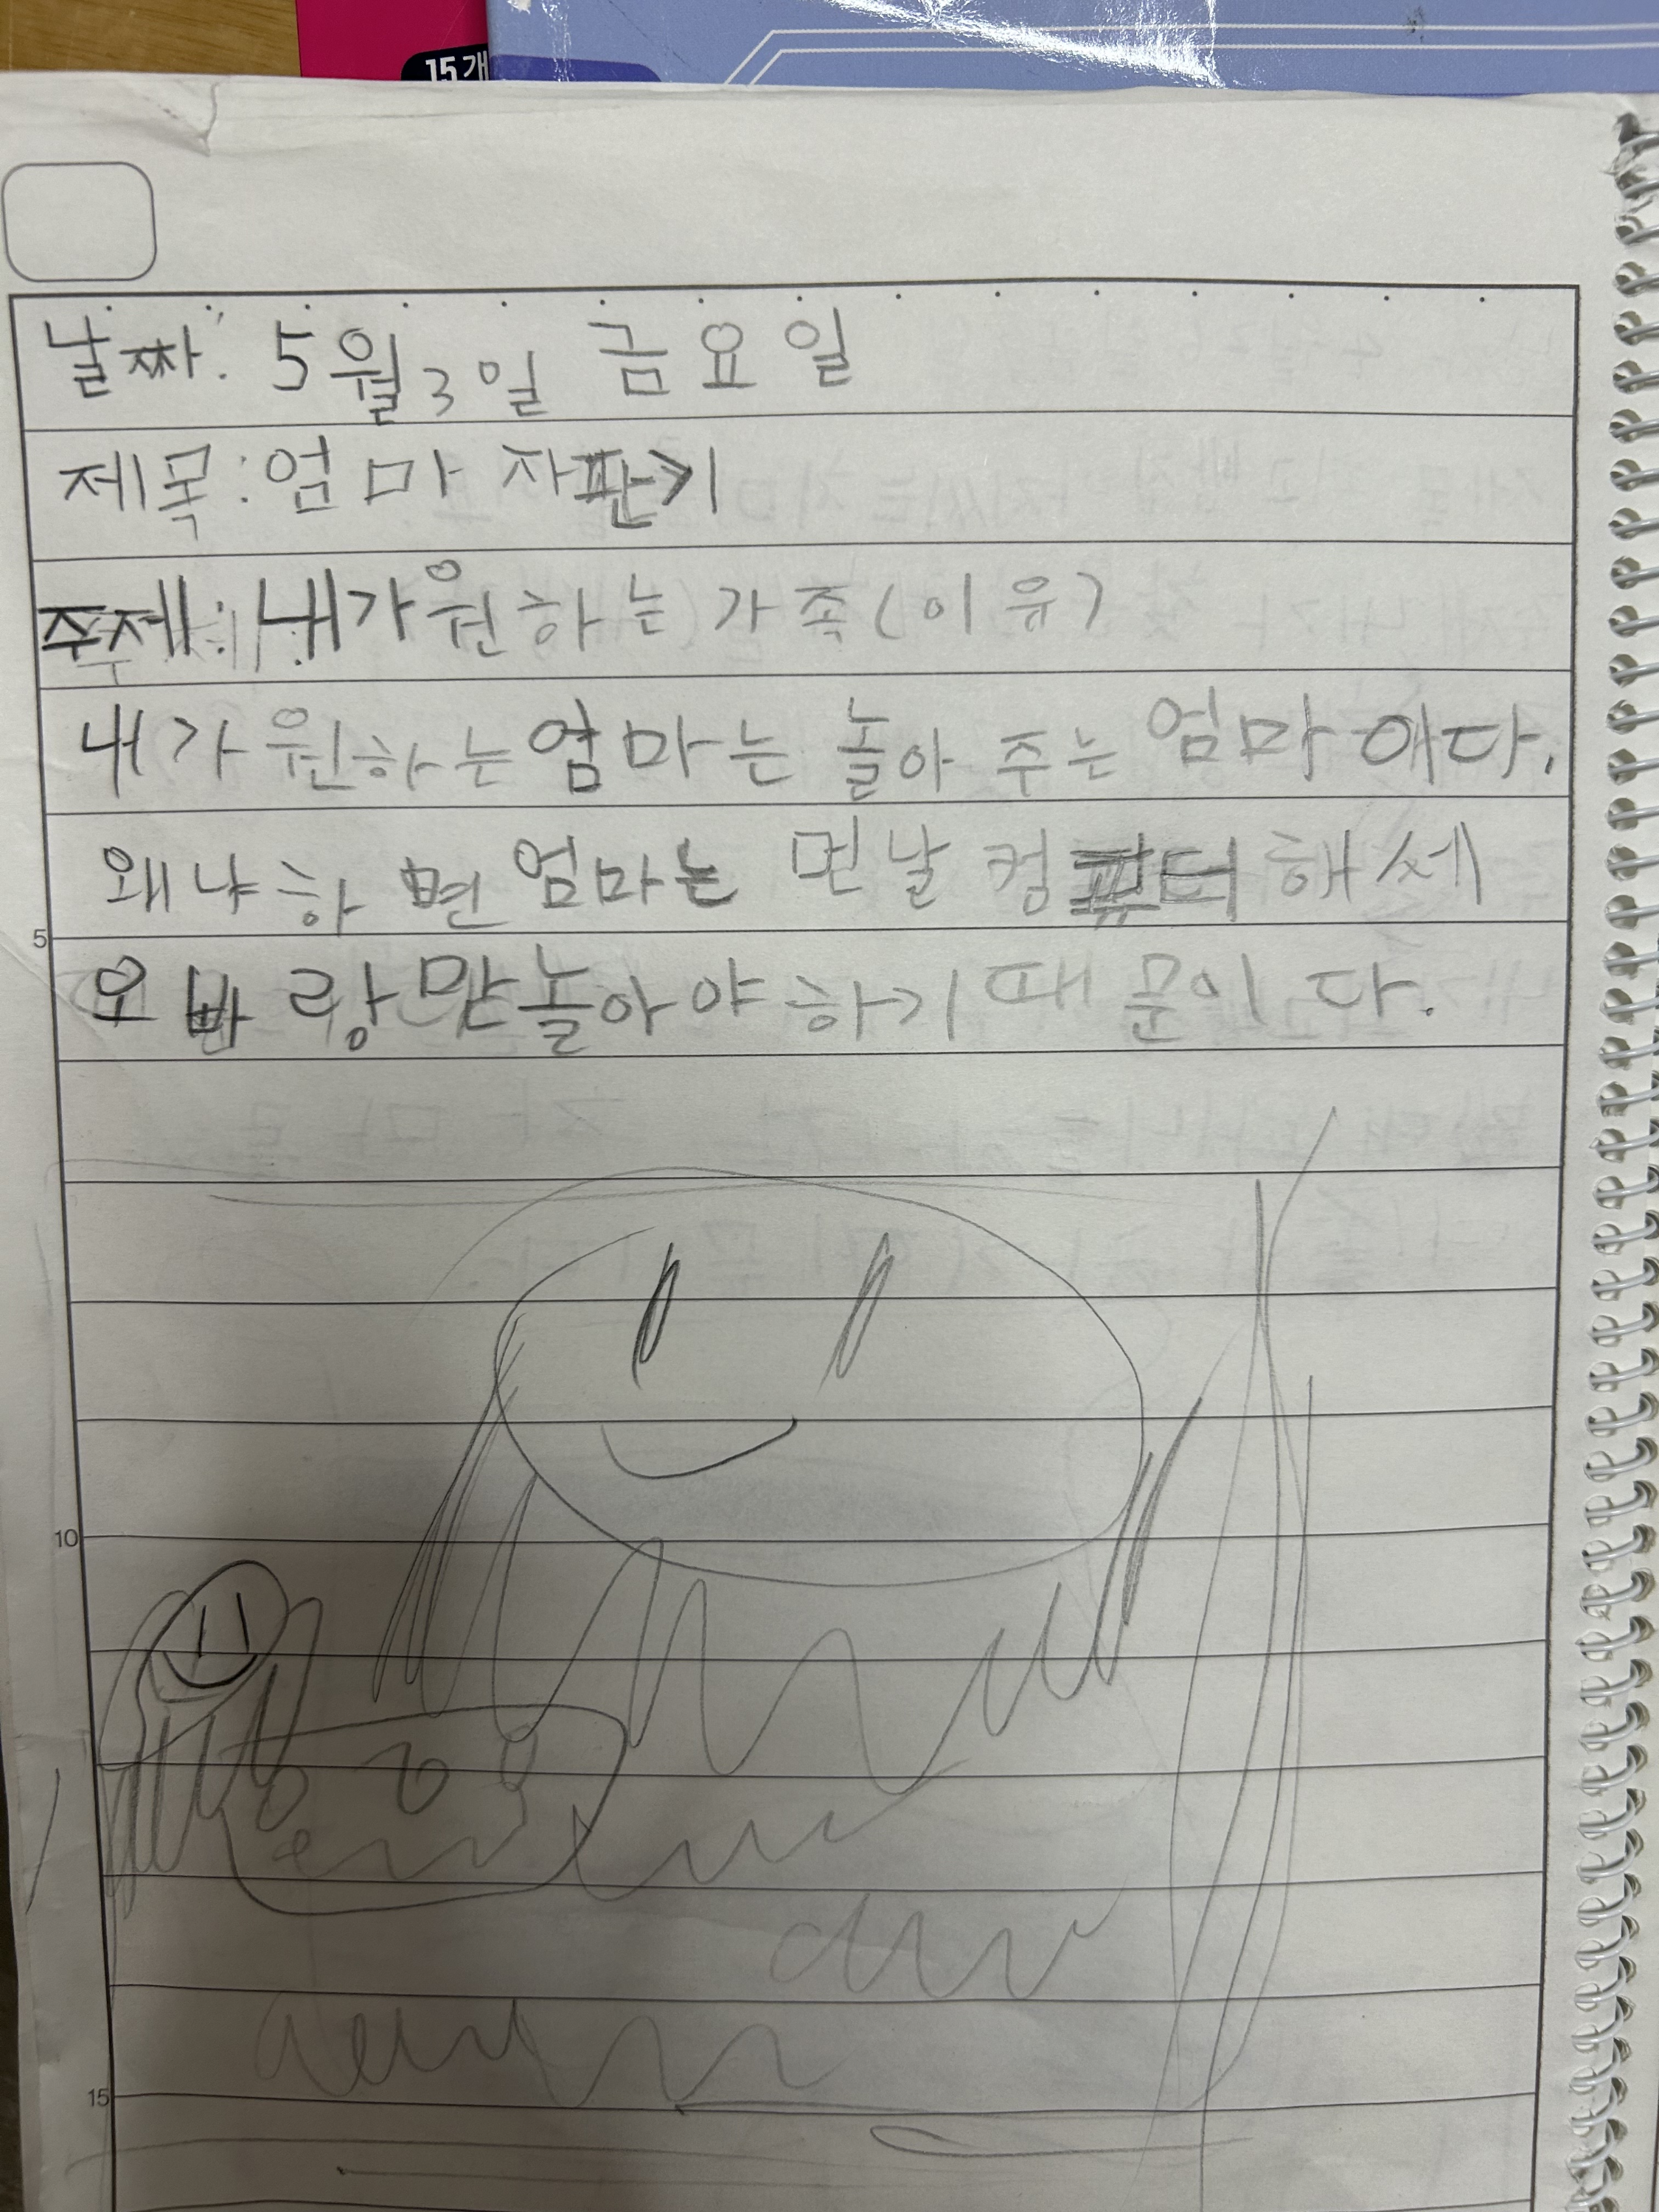 15개
날짜: 5월 3일 금요일
제목: 엄마 자판기
주제: 내가 원하는 가족(이유)
내가 원하는 엄마는 놀아 주는 엄마 이다.
왜냐하면 엄마는 먼날 컴퓨터 해세
오빠랑만 놀아야 하기 때문이다.
5
10
15